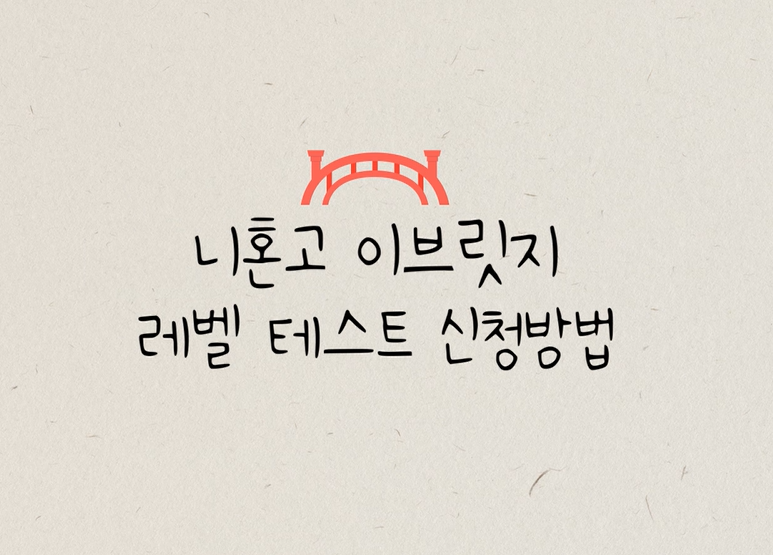 니혼고 이브릿지
레벨 테스트 신청방법